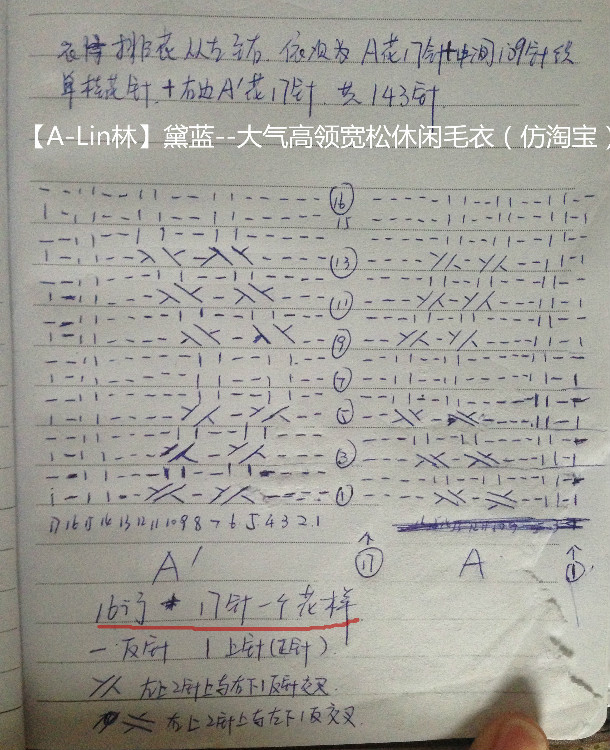 衣片排花从左至右 依次为 A花17针+中间109针织
单桂花针,+右边A'花17针. 共143针
【A-Lin林】黛蓝--大气高领宽松休闲毛衣(仿淘宝)
16
15
13
11
9
7
5
3
1
17 16 15 14 13 12 11 10 9 8 7 6 5 4 3 2 1
A' 17 A 1
16行 * 17针一个花样
一 反针 | 上针(正针)
左上2针上与右下1反针交叉
右上2针上与左下1反交叉